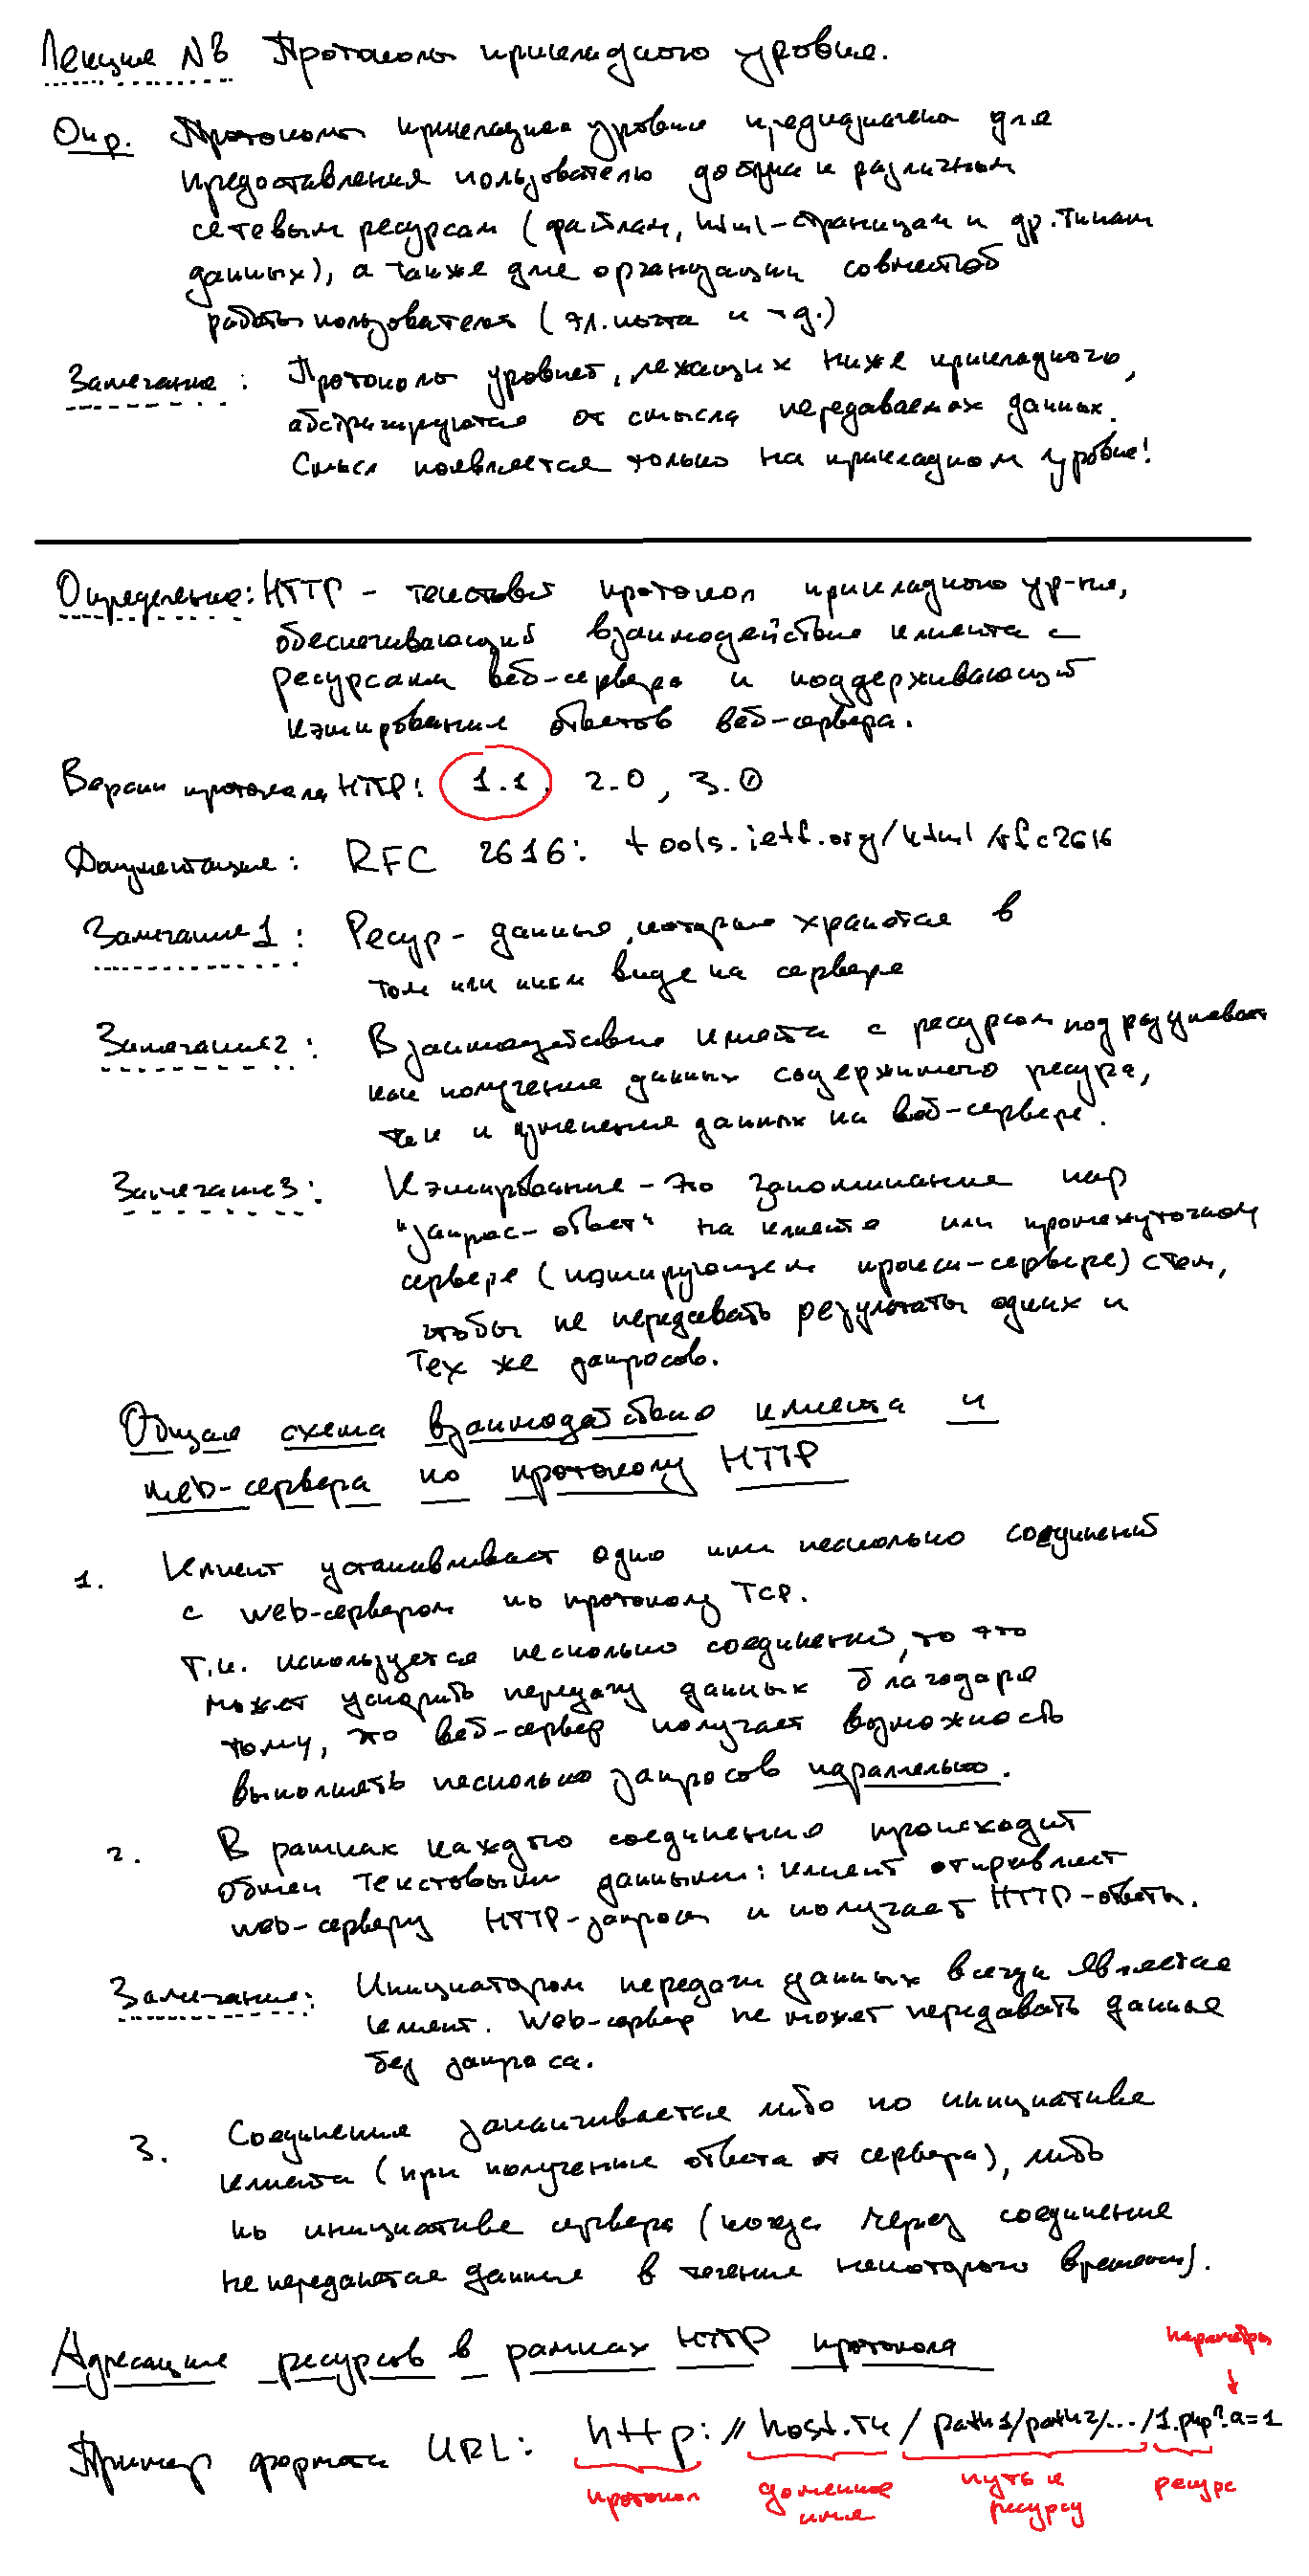 Лекция №8 Протоколы прикладного уровня.
Опр. Протоколы прикладного уровня предназначены для
предоставления пользователю доступа к различным
сетевым ресурсам (файлам, html-страницам и др. типам
данных), а также для организации совместной
работы пользователей (эл. почта и т.д.)
Замечание: Протоколы уровней, лежащих ниже прикладного,
абстрагируются от смысла передаваемых данных.
Смысл появляется только на прикладном уровне!
Определение: HTTP - текстовый протокол прикладного ур-ня,
обеспечивающий взаимодействие клиента с
ресурсами веб-сервера и поддерживающий
кэширование ответов веб-сервера.
Версии протокола HTTP: 1.1, 2.0, 3.0
Документация: RFC 2616: tools.ietf.org/html/rfc2616
Замечание 1: Ресурс - данные, которые хранятся в
том или ином виде на сервере
Замечание 2: Взаимодействие клиента с ресурсом подразумевает
как получение данных содержимого ресурса,
так и изменение данных на веб-сервере.
Замечание 3: Кэширование - это запоминание пар
"запрос-ответ" на клиенте или промежуточном
сервере (кэширующем прокси-сервере) с тем,
чтобы не передавать результаты одних и
тех же запросов.
Общая схема взаимодействия клиента и
web-сервера по протоколу HTTP
1. Клиент устанавливает одно или несколько соединений
с web-сервером по протоколу TCP.
Т.к. используется несколько соединений, то это
может ускорить передачу данных благодаря
тому, что веб-сервер получает возможность
выполнять несколько запросов параллельно.
2. В рамках каждого соединения происходит
обмен текстовыми данными: клиент отправляет
web-серверу HTTP-запросы и получает HTTP-ответы.
Замечание: Инициатором передачи данных всегда является
клиент. Web-сервер не может передавать данные
без запроса.
3. Соединение заканчивается либо по инициативе
клиента (при получение ответа от сервера), либо
по инициативе сервера (когда через соединение
не передаются данные в течение некоторого времени).
Адресация ресурсов в рамках HTTP протокола
параметры
Пример формата URL: http://host.ru/path1/path2/.../1.php?a=1
протокол доменное имя путь к ресурсу ресурс